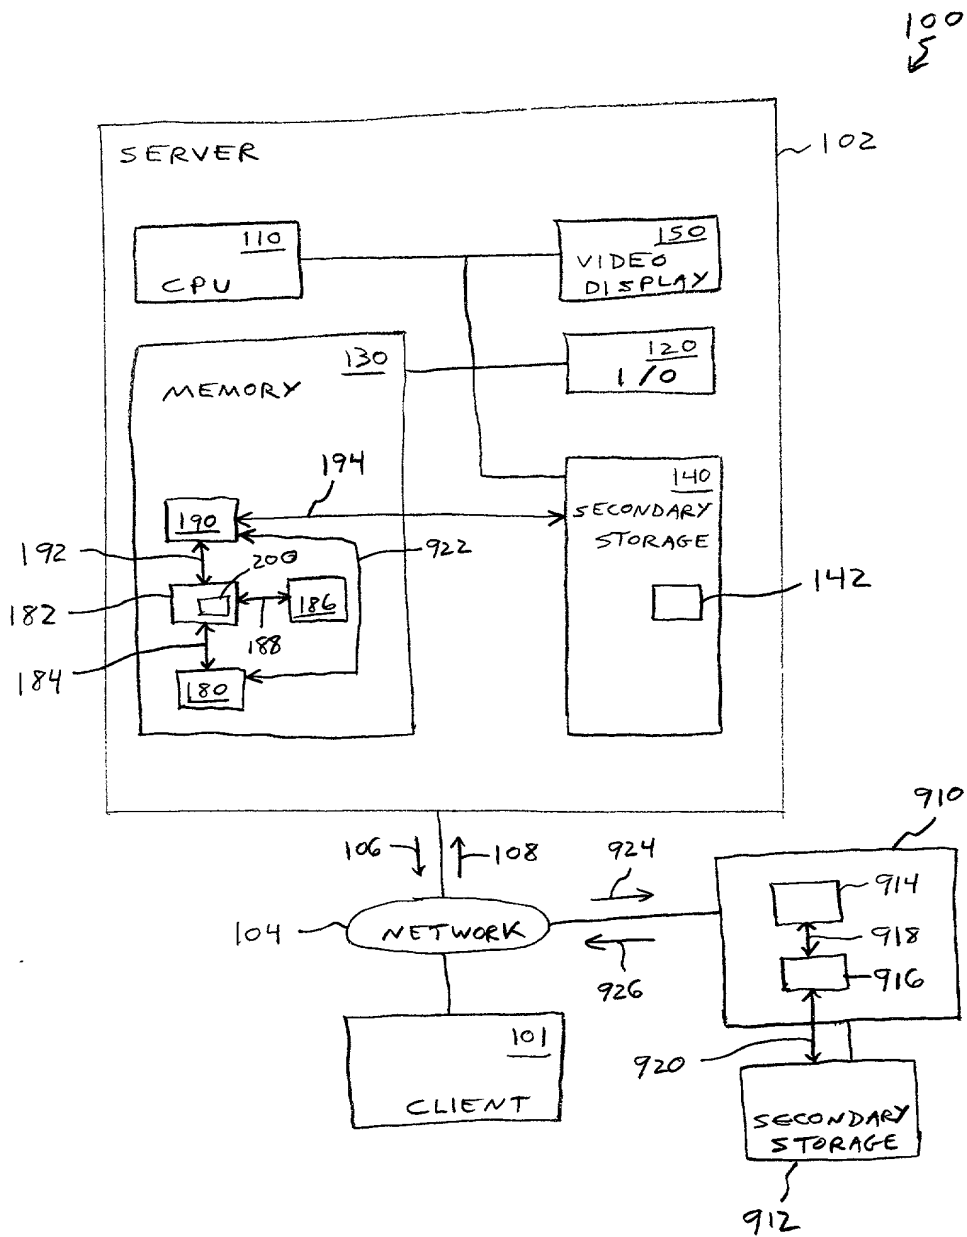 100
SERVER
102
110
CPU
150
VIDEO
DISPLAY
130
MEMORY
120
I/O
194
140
SECONDARY
STORAGE
190
192
200
922
142
182
186
188
184
180
910
106
108
924
914
104
NETWORK
918
916
926
101
CLIENT
920
SECONDARY
STORAGE
912